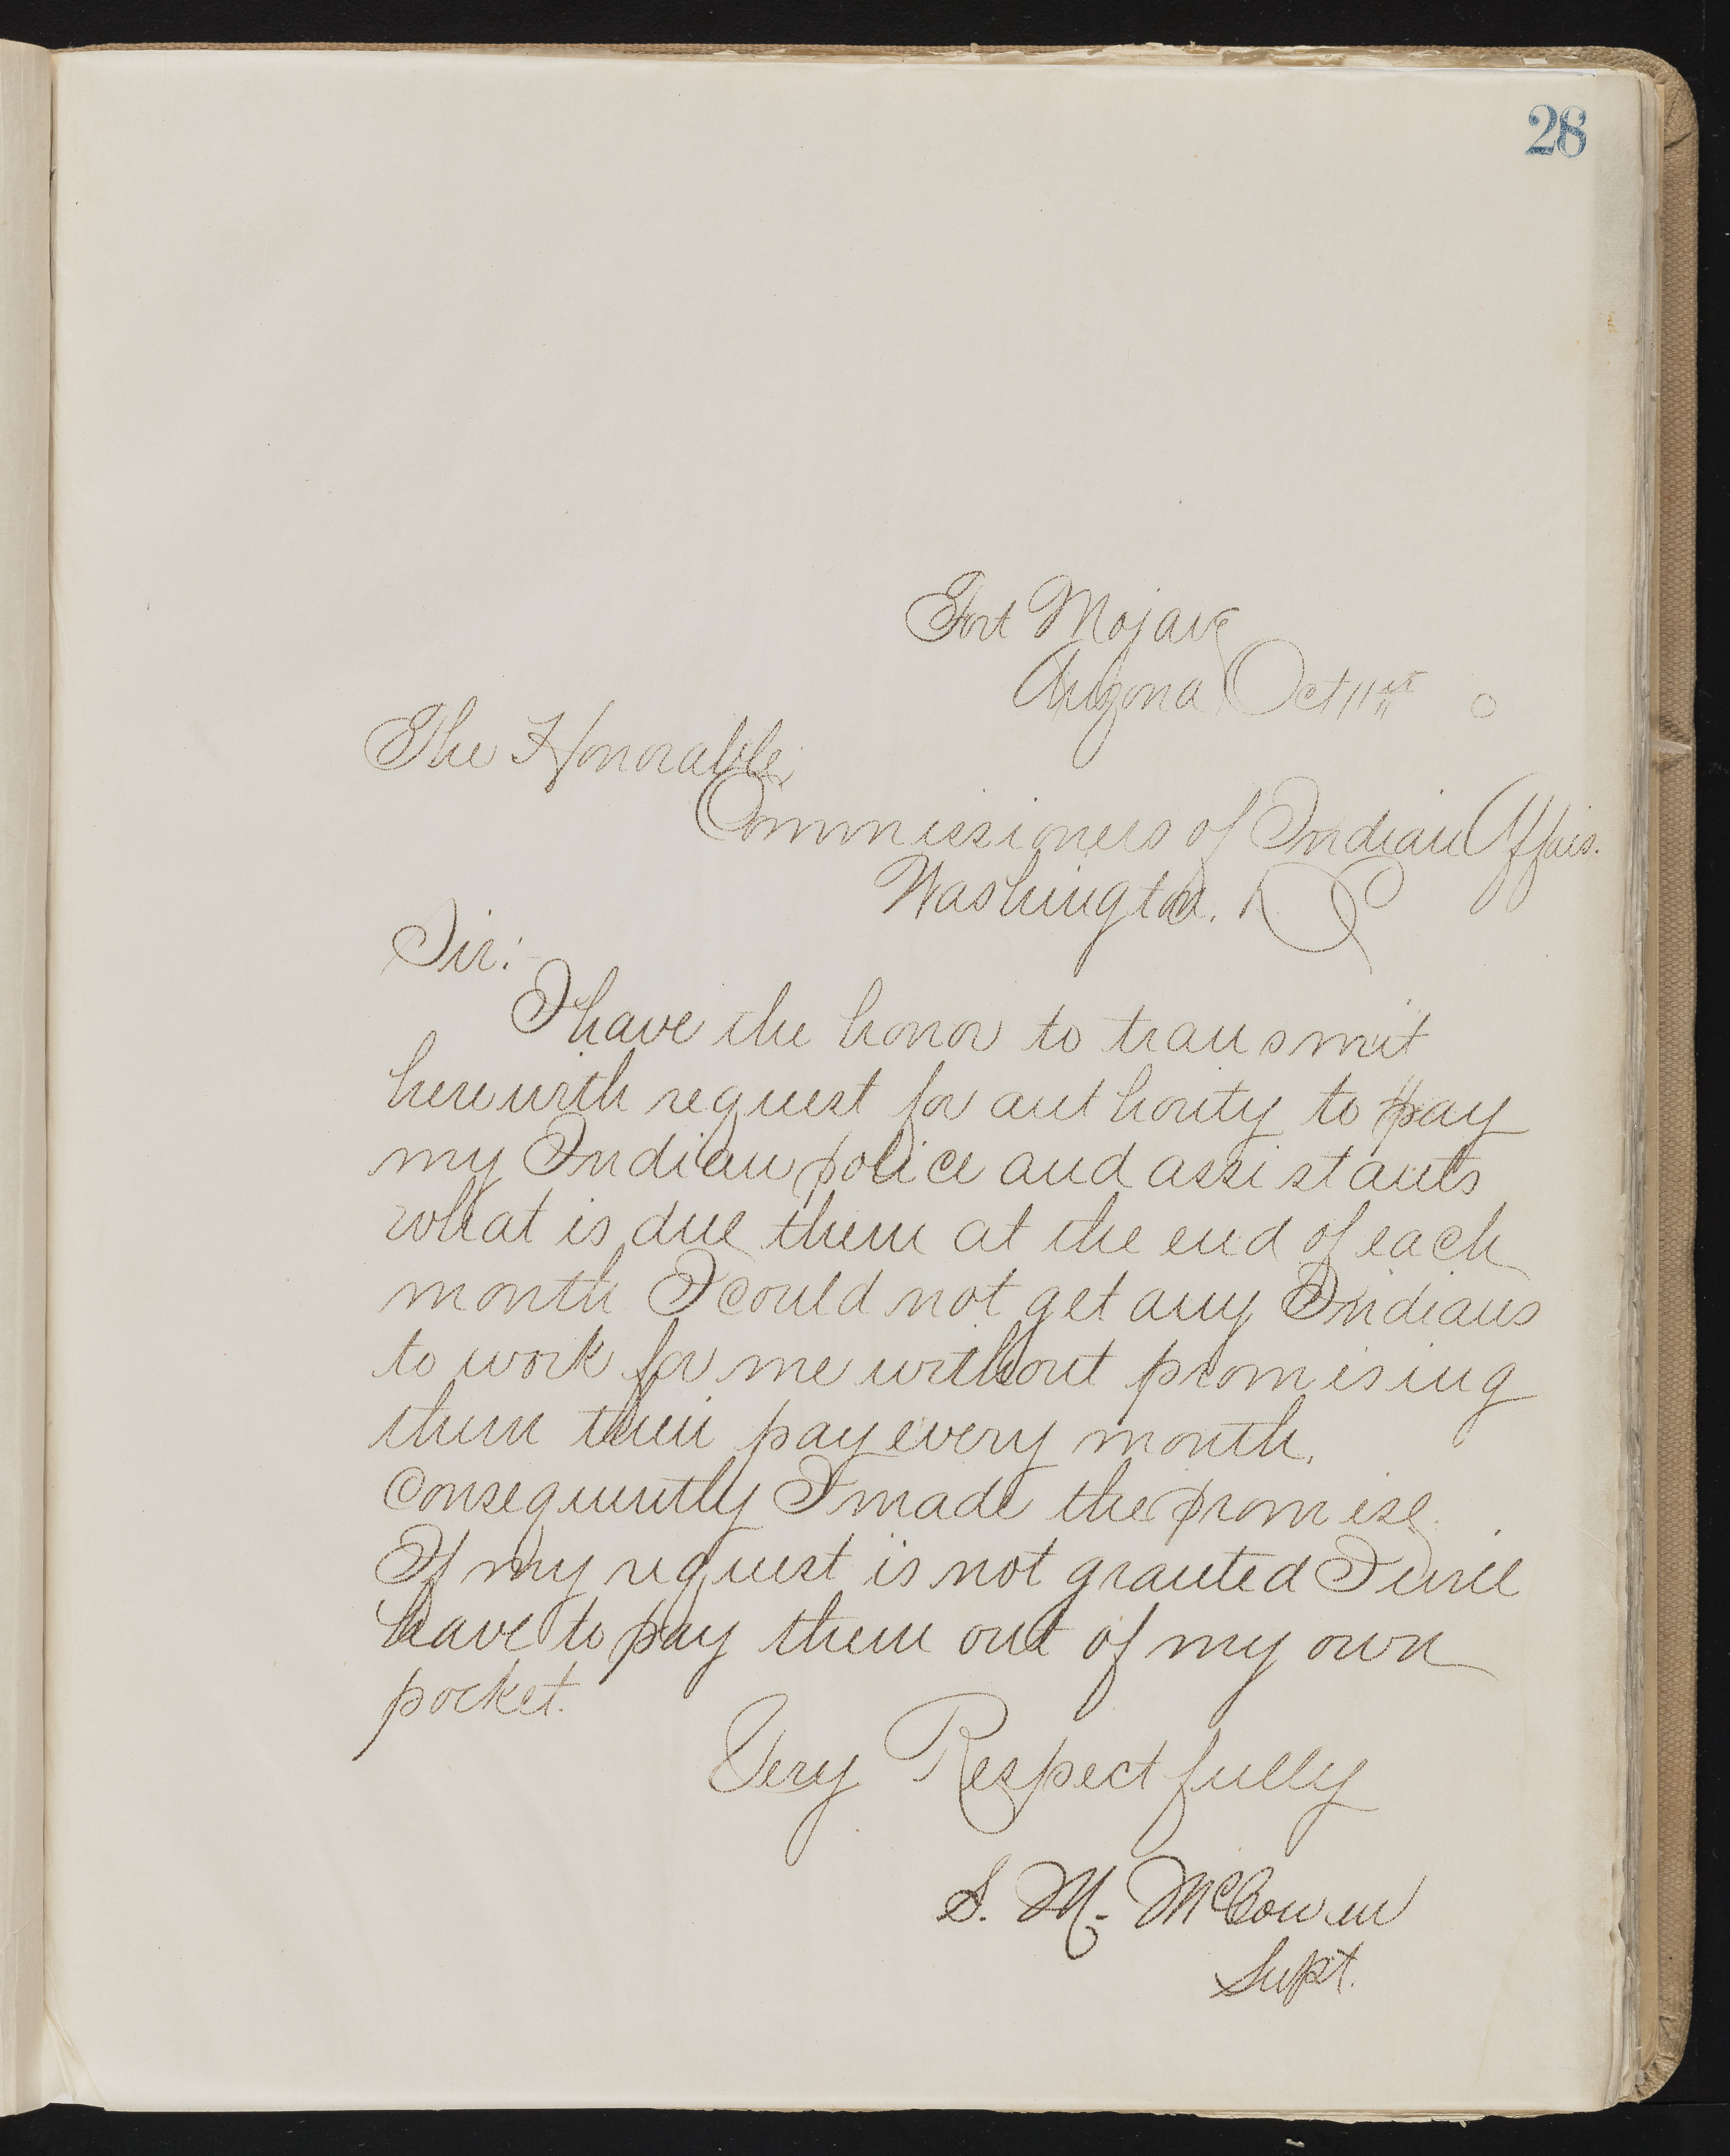 28
Fort Mojave
Arizona Oct 11th
The Honorable
Commissioners of Indian Affairs.
Washington. D C
Sir:
I have the honor to transmit
herewith request for authority to pay
my Indian police and assistants
what is due them at the end of each
month I could not get any Indians
to work for me without promising
them their pay every month.
Consequently I made the promise.
If my request is not granted I will
have to pay them out of my own
pocket.
Very Respectfully
S. M. McCowen
Supt.